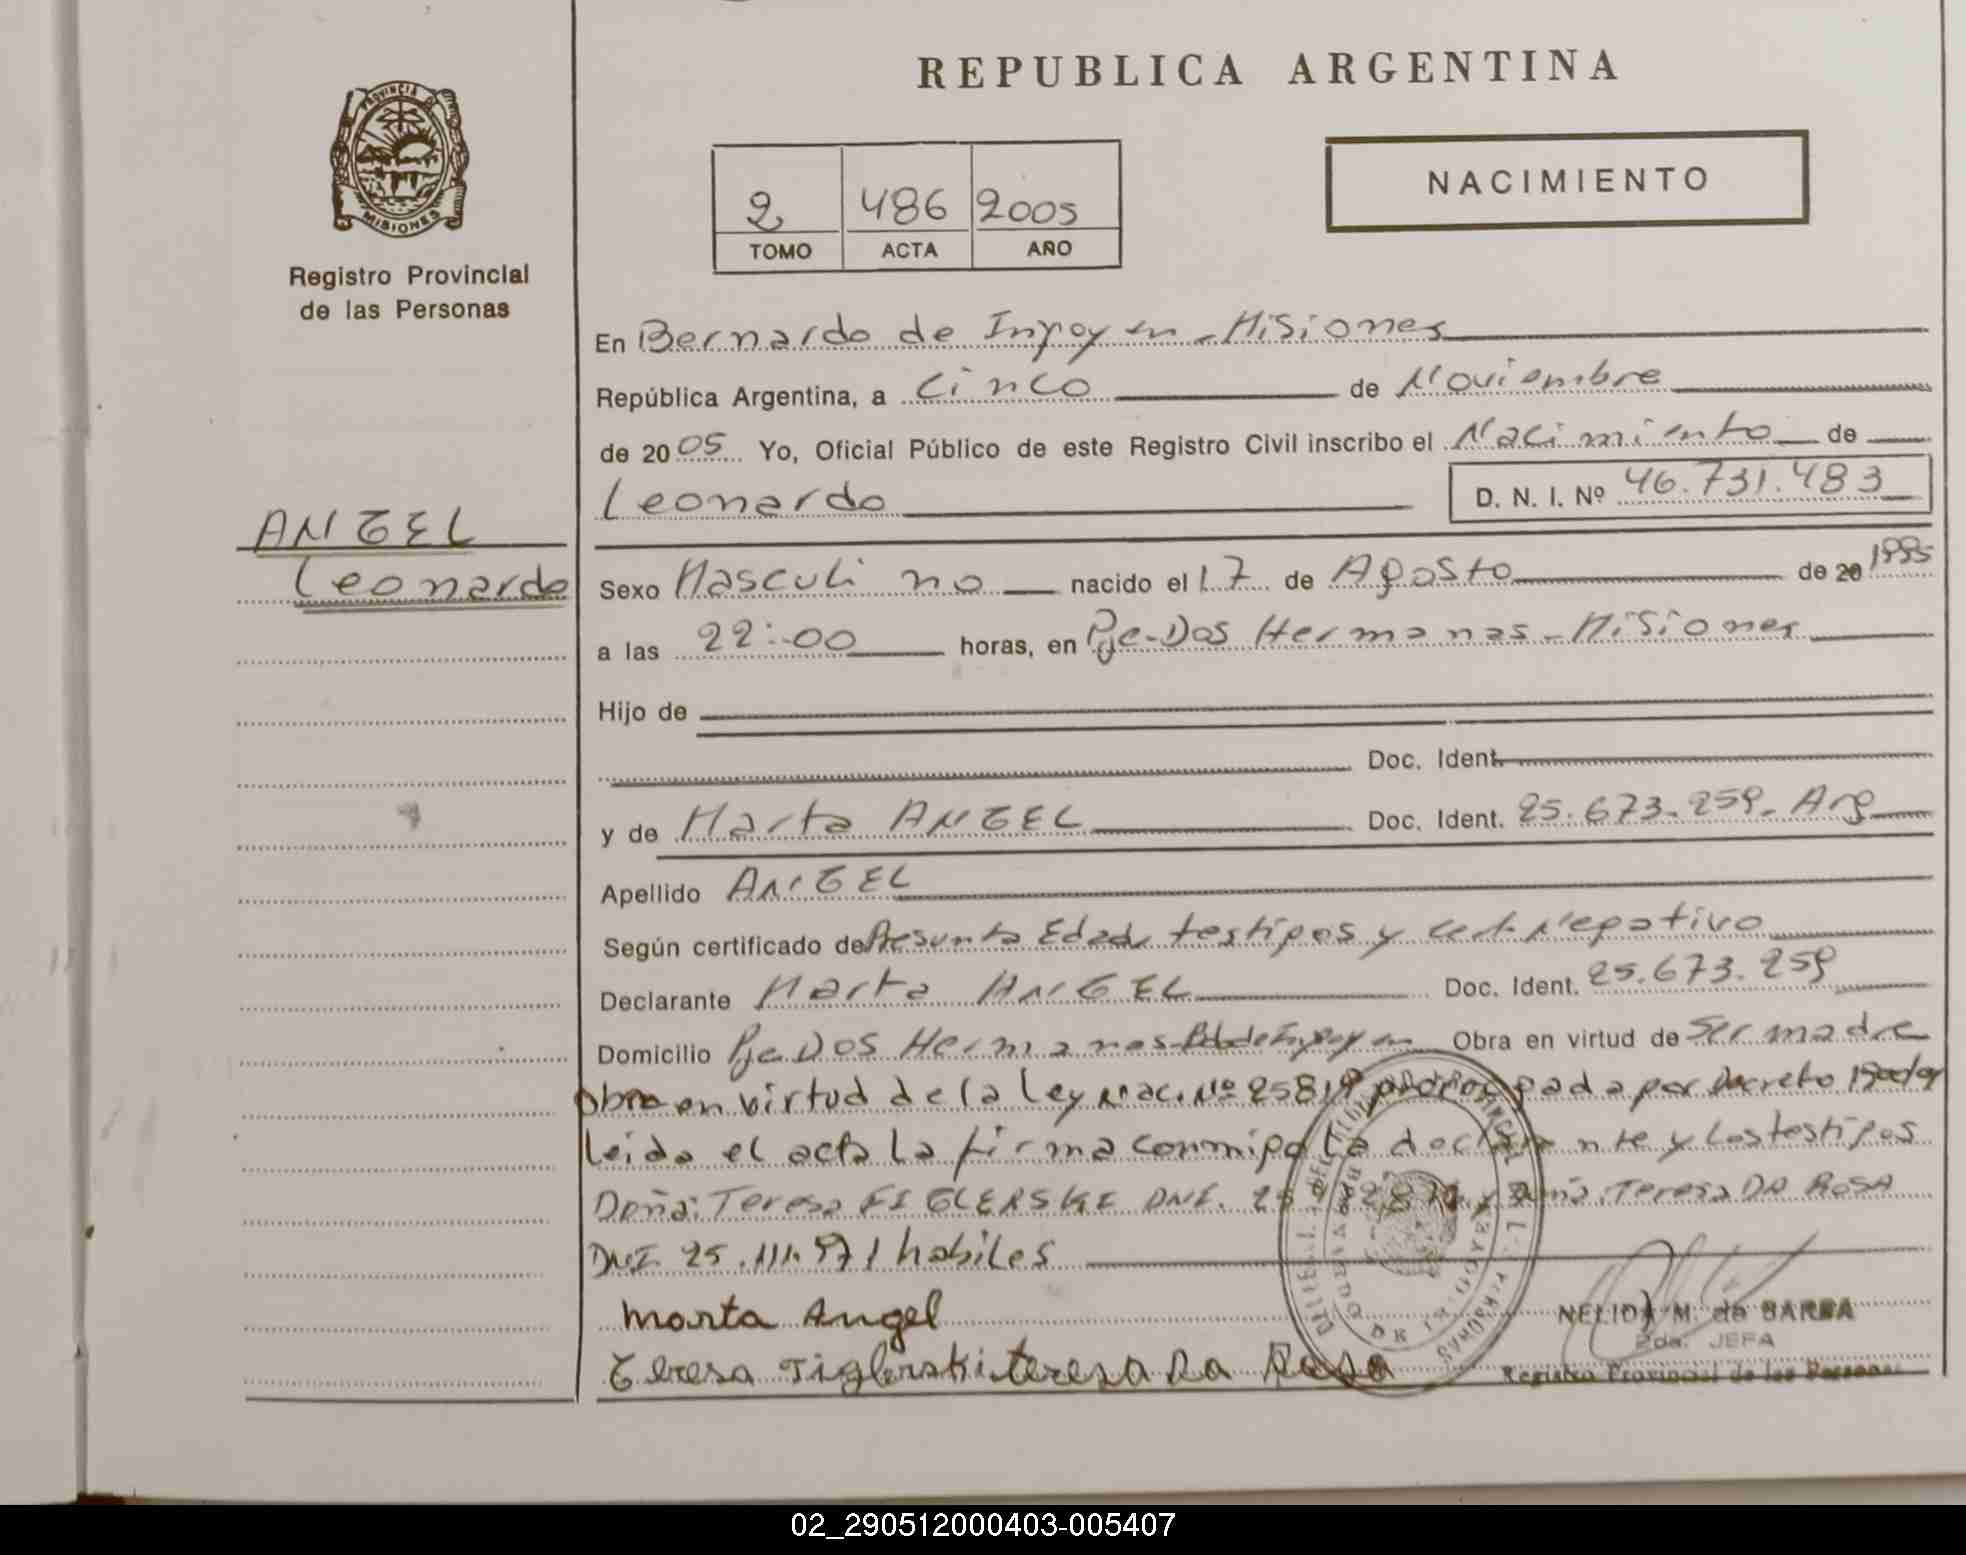 REPUBLICA ARGENTINA
PROVINCIA DE
MISIONES
Registro Provincial
de las Personas
NACIMIENTO
2 486 2005
TOMO ACTA AÑO
En Bernardo de Irigoyen - Misiones
República Argentina, a Cinco de Noviembre
de 2005 Yo, Oficial Público de este Registro Civil inscribo el Nacimiento de
Leonardo D. N. I. Nº 46.731.483
ANGEL
Leonardo
Sexo Masculino nacido el 17 de Agosto de 20 1995
a las 22:00 horas, en Pje Dos Hermanas - Misiones
Hijo de
Doc. Ident.
y de Marta ANGEL Doc. Ident. 25.673.259 - Arg
Apellido ANGEL
Según certificado de Presunta Edad, testigos y cert. Negativo
Declarante Marta ANGEL Doc. Ident. 25.673.259
Domicilio Pje Dos Hermanas - Bdo de Irigoyen Obra en virtud de Ser madre
Obra en virtud de la Ley Nac. Nº 25819 prorrogada por Decreto
leida el acta la firma conmigo la declarante y los testigos
Doña: Teresa DNI. y Doña: Teresa DA ROSA
DNI. 25.111.571 habiles
Marta Angel
Teresa teresa Da Rosa
NELIDA M. de BARRA
2da. JEFA
Registro Provincial de las Personas
02_290512000403-005407